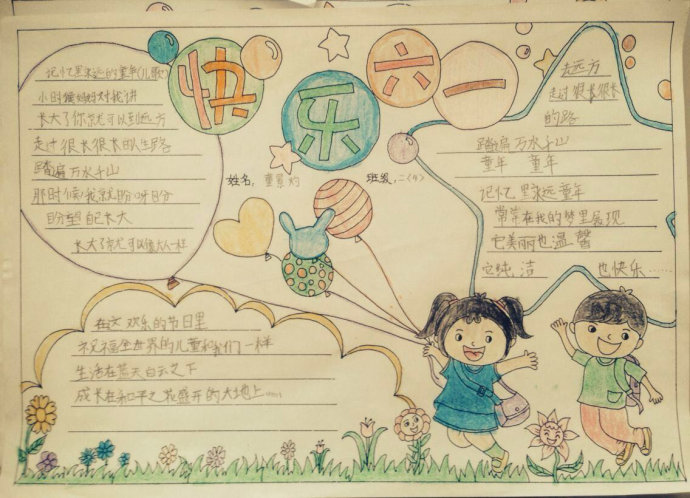 快乐六一
记忆里永远的童年(儿歌)
小时候妈妈对我讲
长大了你就可以到远方
走过很长很长的人生路
踏遍万水千山
那时候我就盼呀盼
盼望自己长大
长大了就可以像大人一样
姓名:
班级:二〈4〉
去远方
走过很长很长
的路
踏遍万水千山
童年 童年
记忆里永远童年
常常在我的梦里展现
它美丽也温馨
它纯洁 也快乐……
在这欢乐的节日里
祝福全世界的儿童和我们一样
生活在蓝天白云之下
成长在和平之花盛开的大地上……